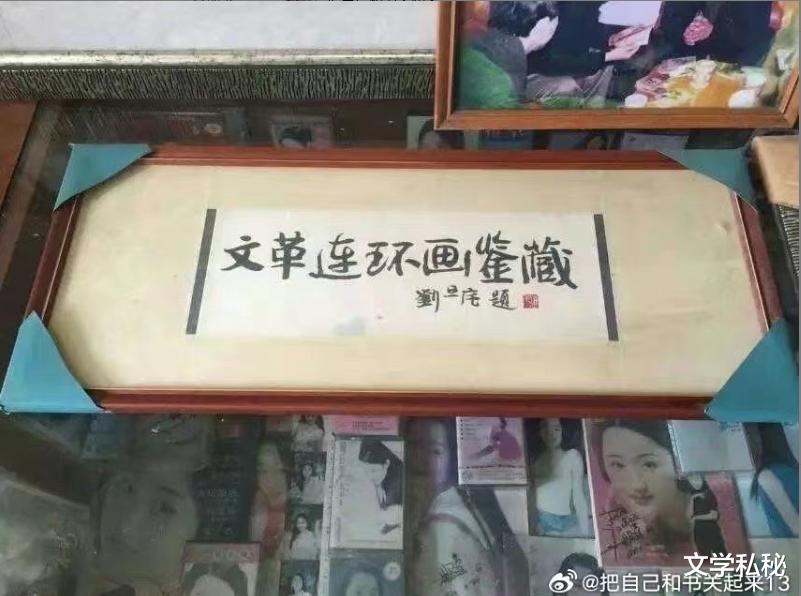 文革连环画鉴藏
劉旦宅題
文学私秘
@把自己和书关起来13